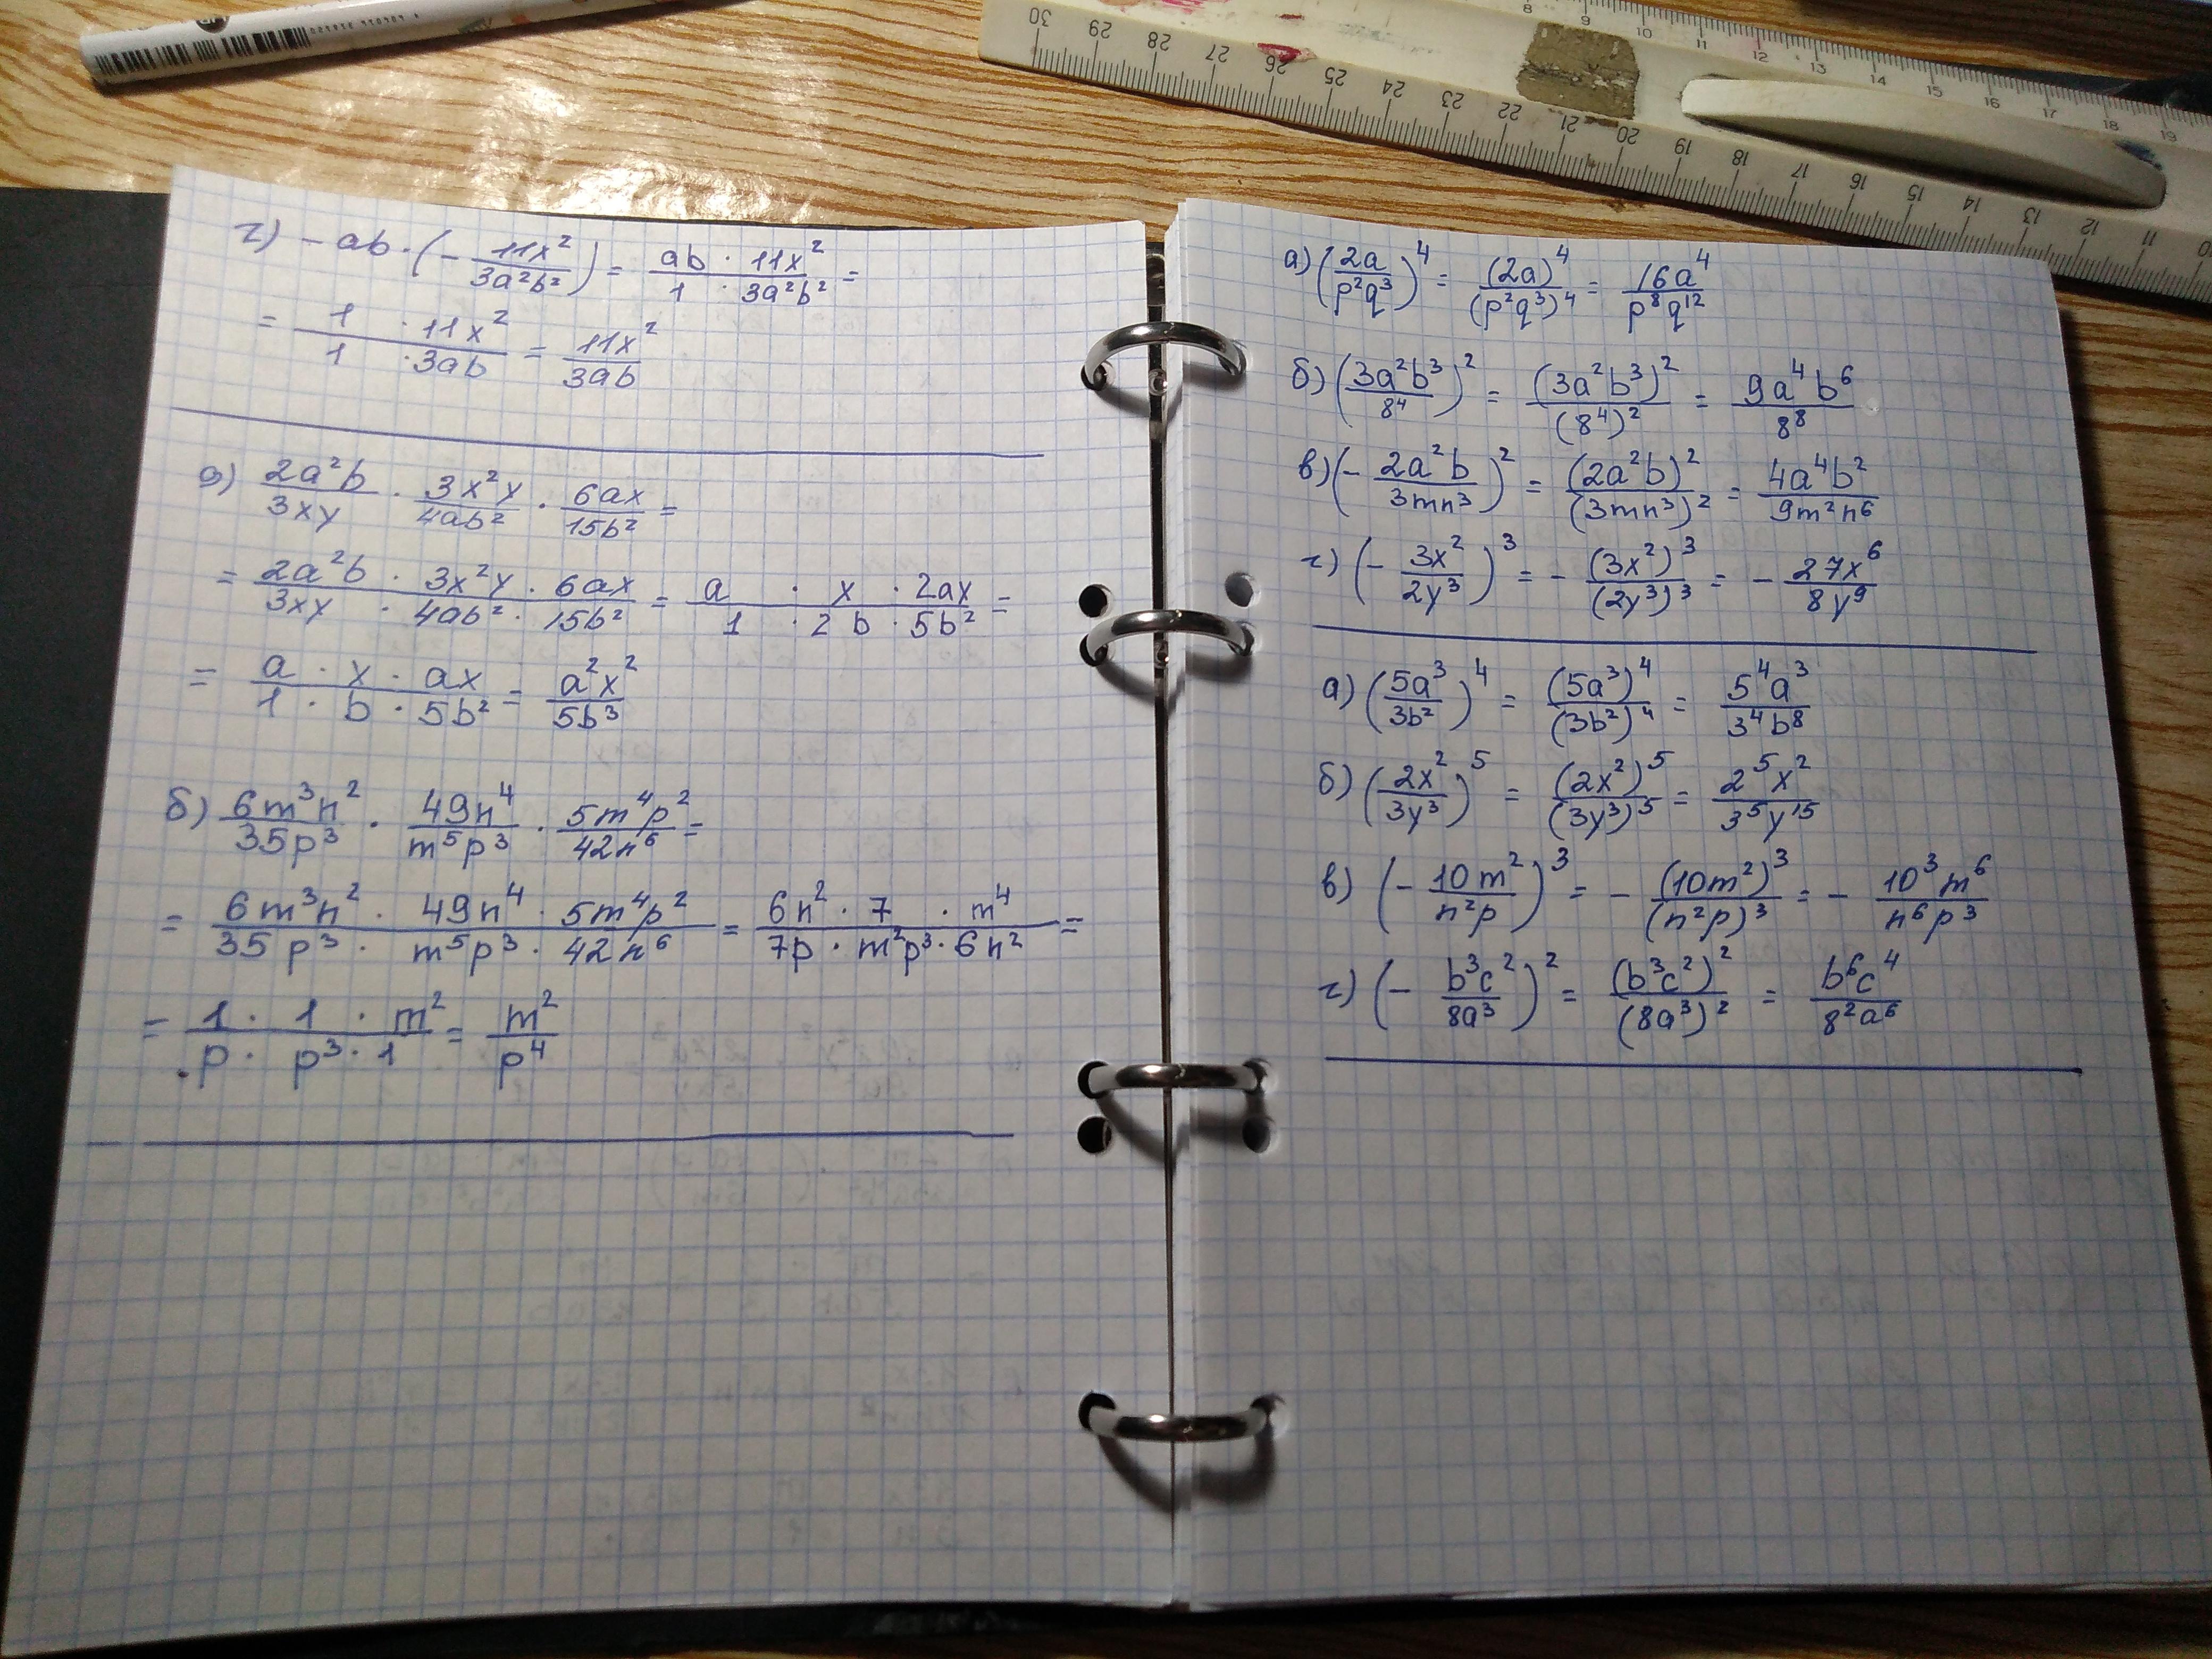 г) -ab·(-11x²/3a²b²) = ab·11x²/1·3a²b² =
= 1·11x²/1·3ab = 11x²/3ab
а) 2a²b/3xy · 3x²y/4ab² · 6ax/15b² =
= 2a²b·3x²y·6ax/3xy·4ab²·15b² = a·x·2ax/1·2b·5b² =
= a·x·ax/1·b·5b² = a²x²/5b³
б) 6m³n²/35p³ · 49n⁴/m⁵p³ · 5m⁴p²/42n⁶ =
= 6m³n²·49n⁴·5m⁴p²/35p³·m⁵p³·42n⁶ = 6n²·7·m⁴/7p·m²p³·6n² =
= 1·1·m²/p·p³·1 = m²/p⁴
а) (2a/p²q³)⁴ = (2a)⁴/(p²q³)⁴ = 16a⁴/p⁸q¹²
б) (3a²b³/8⁴)² = (3a²b³)²/(8⁴)² = 9a⁴b⁶/8⁸
в) (-2a²b/3mn³)² = (2a²b)²/(3mn³)² = 4a⁴b²/9m²n⁶
г) (-3x²/2y³)³ = -(3x²)³/(2y³)³ = -27x⁶/8y⁹
а) (5a³/3b²)⁴ = (5a³)⁴/(3b²)⁴ = 5⁴a³/3⁴b⁸
б) (2x²/3y³)⁵ = (2x²)⁵/(3y³)⁵ = 2⁵x²/3⁵y¹⁵
в) (-10m²/n²p)³ = -(10m²)³/(n²p)³ = -10³m⁶/n⁶p³
г) (-b³c²/8a³)² = (b³c²)²/(8a³)² = b⁶c⁴/8²a⁶
30 29 28 27 26 25 24 23 22 21 20 19 18 17 16 15 14 13 12 11 10
8 9 10 11 12 13 14 15 16 17 18 19